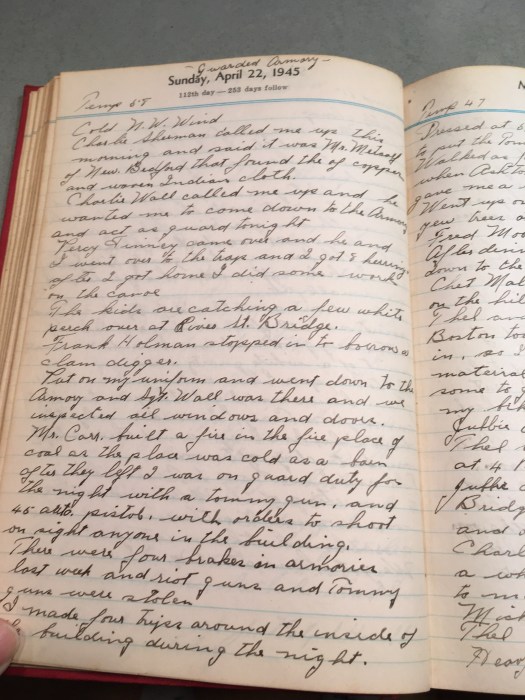 - Guarded Armory -
Sunday, April 22, 1945
112th day — 253 days follow
Temp 58
Cold N. W. Wind
Charlie Sherman called me up this
morning and said it was Mr. Metcalf
of New Bedford that found the of copper
and woven Indian cloth.
Charlie Wall called me up and he
wanted me to come down to the Armory
and act as guard tonight
Percy Tinney came over and he and
I went over to the trap and I got 8 herring
after I got home I did some work
on the canoe
The kids are catching a few white
perch over at River St. Bridge.
Frank Holman stopped in to borrow a
clam digger.
Put on my uniform and went down to the
Armory and Sgt. Wall was there and we
inspected all windows and doors.
Mr. Carr. built a fire in the fire place of
coal as the place was cold as a barn
after they left I was on guard duty for
the night with a tommy gun, and
45 auto. pistol, with orders to shoot
on sight anyone in the building.
There were four brakes in armories
last week and riot guns and Tommy
guns were stolen
I made four trips around the inside of
building during the night.
Temp 47
Passed at
to put the
Walked as
when
gave me a
Went up
yew trees
Fred Moo
After din
down to the
Chet Mal
on the hil
Thel and
Boston to
in, so I
material
some to
my
Jubbie
Thel
at 4
Jubbe
Bridg
and
Charl
a wh
to m
Thel
Heavy